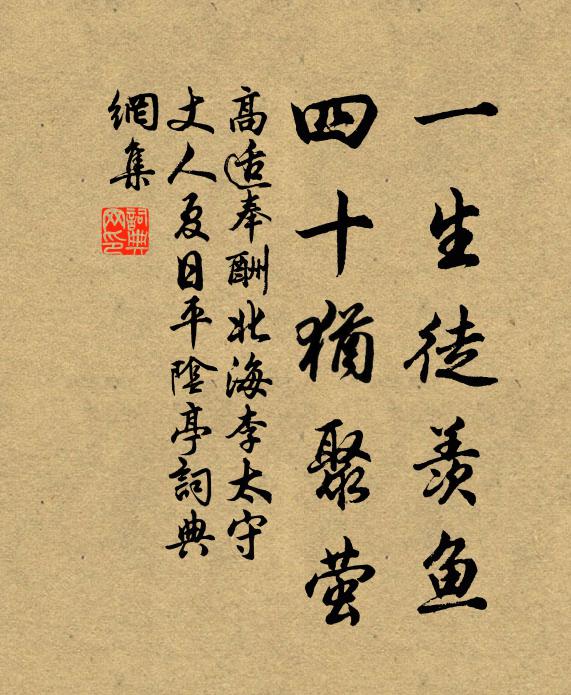 一生徒羡鱼
四十犹聚萤
高适奉酬北海李太守
丈人夏日平陰亭詞典
網集
詞典網印